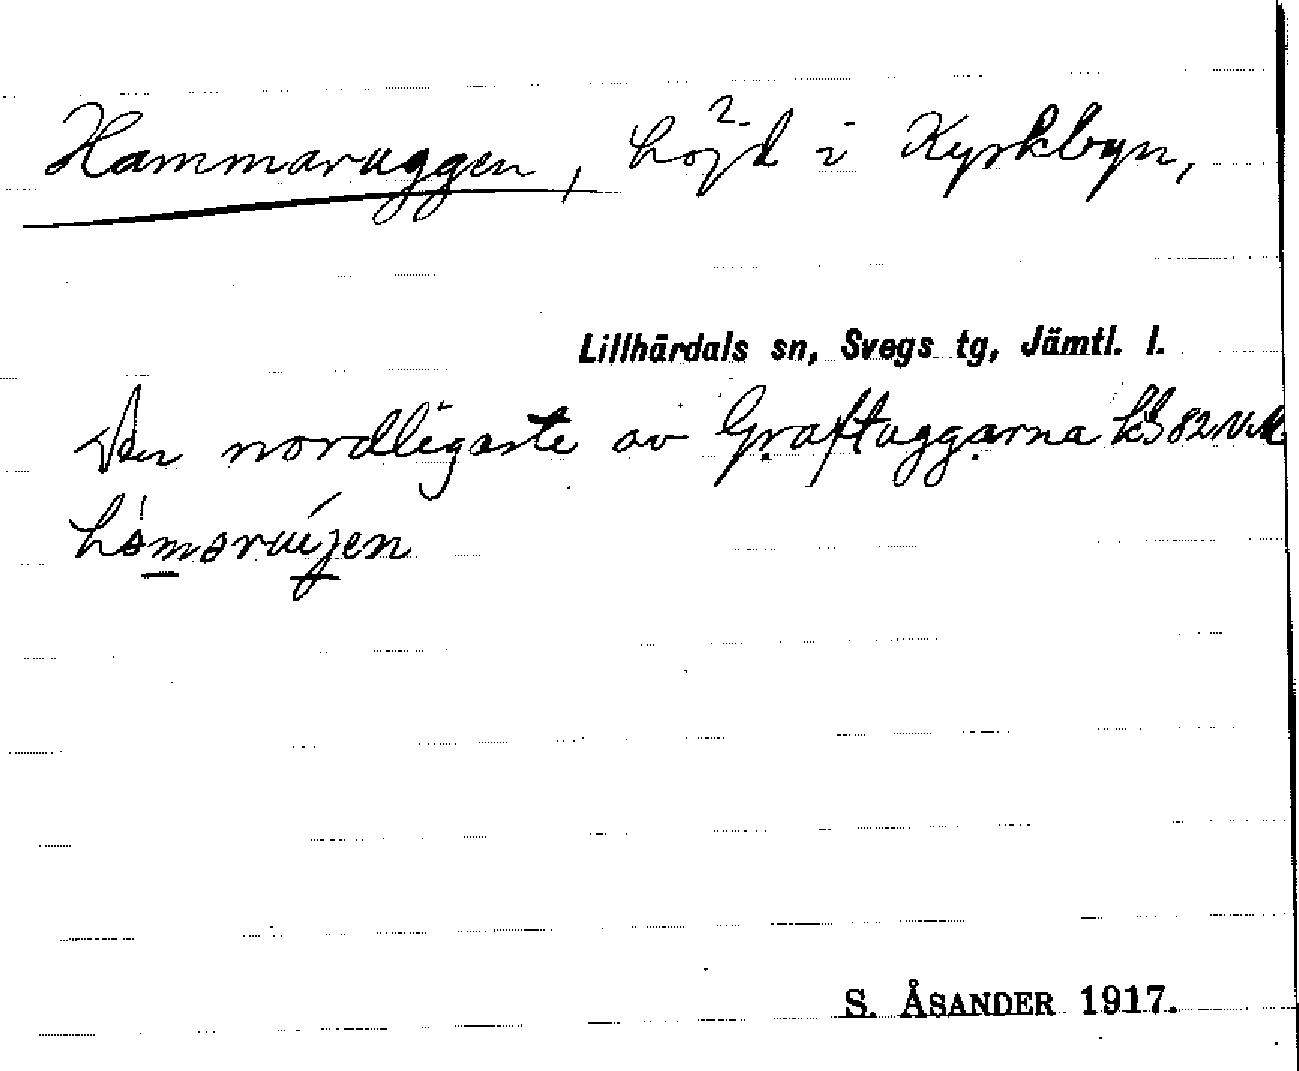 Hammaruggen, höjd i Kyrkbyn,
Lillhärdals sn, Svegs tg, Jämtl. l.
Den nordligaste av Graftuggarna
S. ÅSANDER 1917.